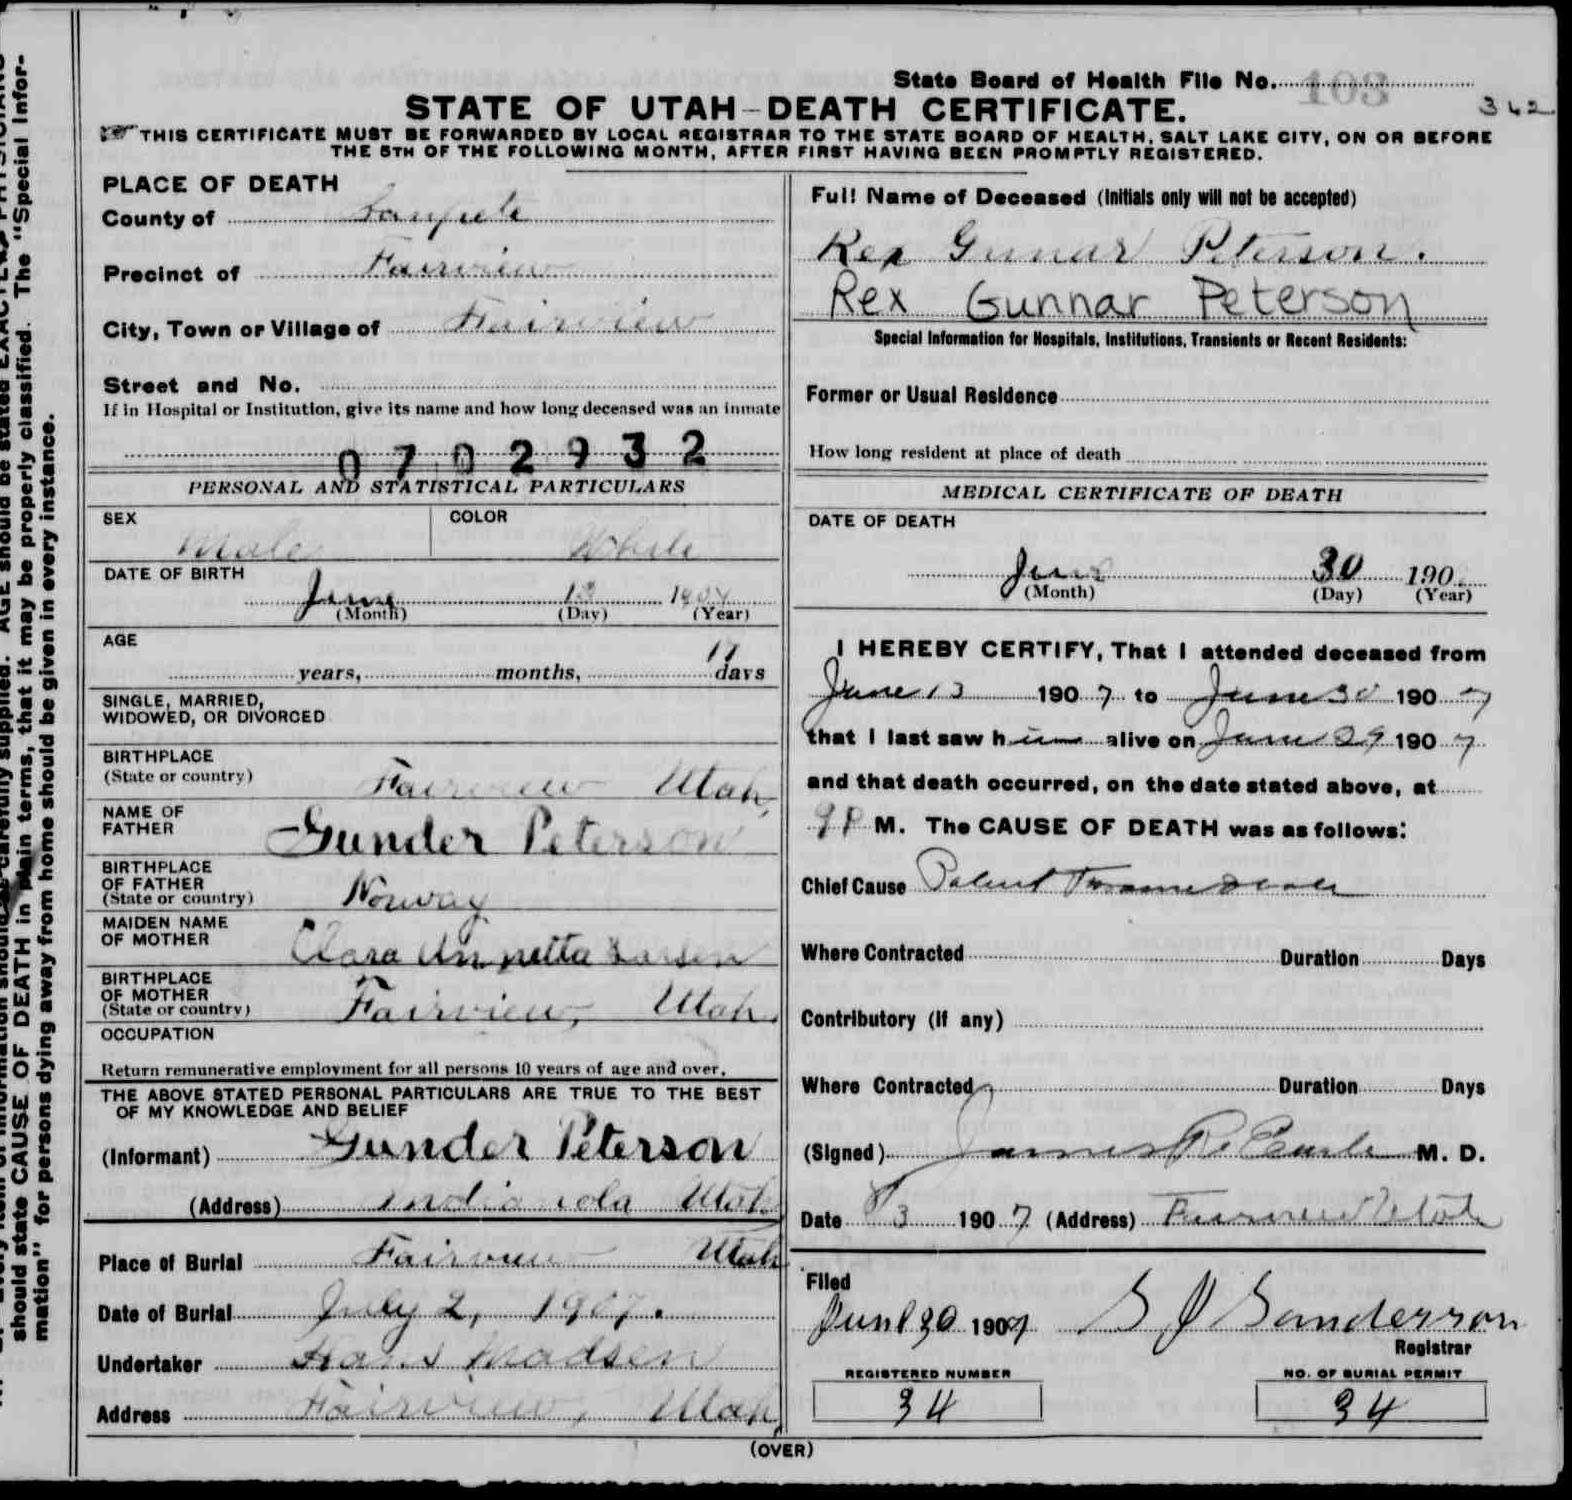 State Board of Health File No. 103
342
STATE OF UTAH-DEATH CERTIFICATE.
THIS CERTIFICATE MUST BE FORWARDED BY LOCAL REGISTRAR TO THE STATE BOARD OF HEALTH, SALT LAKE CITY, ON OR BEFORE
THE 5TH OF THE FOLLOWING MONTH, AFTER FIRST HAVING BEEN PROMPTLY REGISTERED.
PLACE OF DEATH
County of Sanpete
Precinct of Fairview
City, Town or Village of Fairview
Street and No.
If in Hospital or Institution, give its name and how long deceased was an inmate
0702932
PERSONAL AND STATISTICAL PARTICULARS
SEX COLOR
Male White
DATE OF BIRTH
June 13 1907
(Month) (Day) (Year)
AGE
years, months, 17 days
SINGLE, MARRIED,
WIDOWED, OR DIVORCED
BIRTHPLACE
(State or country) Fairview Utah,
NAME OF
FATHER Gunder Peterson
BIRTHPLACE
OF FATHER
(State or country) Norway
MAIDEN NAME
OF MOTHER Clara Annetta Larsen
BIRTHPLACE
OF MOTHER
(State or country) Fairview, Utah.
OCCUPATION
Return remunerative employment for all persons 10 years of age and over.
THE ABOVE STATED PERSONAL PARTICULARS ARE TRUE TO THE BEST
OF MY KNOWLEDGE AND BELIEF
(Informant) Gunder Peterson
(Address) Indianola Utah
Place of Burial Fairview Utah
Date of Burial July 2, 1907.
Undertaker Hans Madsen
Address Fairview, Utah,
Full Name of Deceased (Initials only will not be accepted)
Rex Gunnar Peterson.
Rex Gunnar Peterson
Special Information for Hospitals, Institutions, Transients or Recent Residents:
Former or Usual Residence
How long resident at place of death
MEDICAL CERTIFICATE OF DEATH
DATE OF DEATH
June 30 190
(Month) (Day) (Year)
I HEREBY CERTIFY, That I attended deceased from
June 13 1907 to June 30 1907
that I last saw him alive on June 29 1907
and that death occurred, on the date stated above, at
9 P M. The CAUSE OF DEATH was as follows:
Chief Cause Patent
Where Contracted Duration Days
Contributory (If any)
Where Contracted Duration Days
(Signed) James R. M. D.
Date 3 1907 (Address) Fairview Utah
Filed
June 30 1907 S J Sanderson
Registrar
REGISTERED NUMBER NO. OF BURIAL PERMIT
34 34
(OVER)
should state CAUSE OF DEATH in plain terms, that it may be properly classified. The "Special Infor-
mation" for persons dying away from home should be given in every instance.